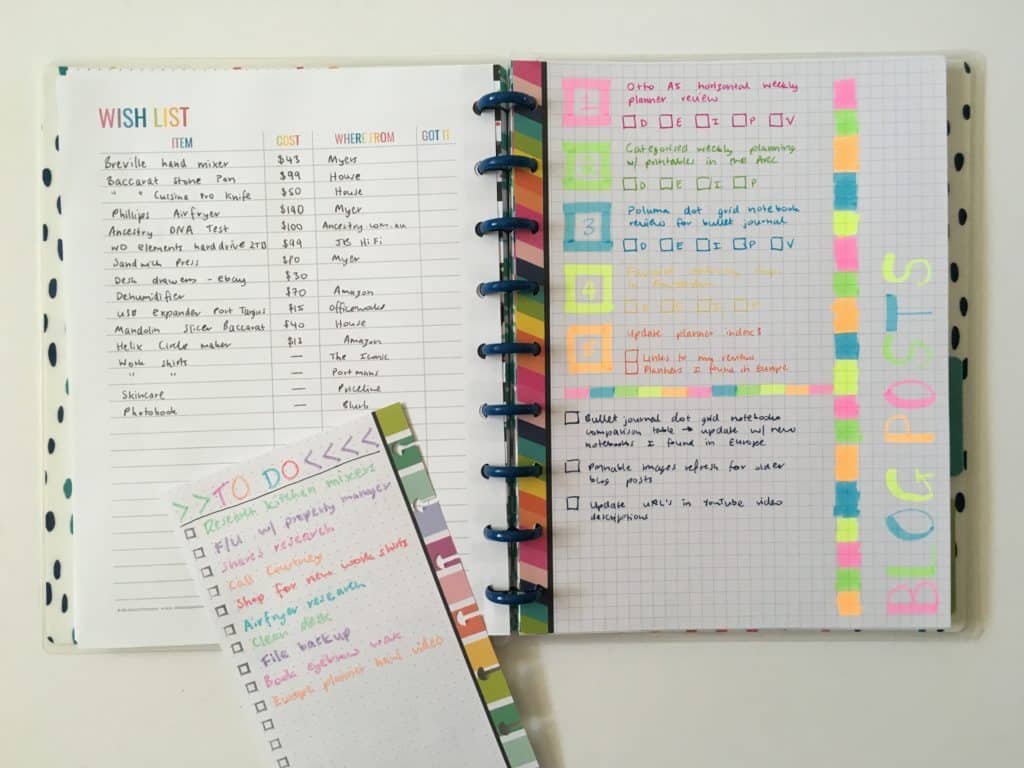 WISH LIST
ITEM COST WHERE FROM GOT IT
Breville hand mixer $43 Myers
Baccarat Stone Pan $99 House
" " Cuisine Pro Knife $50 House
Phillips Airfryer $190 Myer
Ancestry DNA Test $100 Ancestry.com.au
WD elements hard drive 2TB $99 JB HiFi
Sandwich Press Myer
Desk drawers - ebay $30
Dehumidifier $70 Amazon
USB expander Port Targus $15 Officeworks
Mandolin Slicer Baccarat $40 House
Helix Circle maker $13 Amazon
Work shirts — The Iconic
" " — Portmans
Skincare — Priceline
Photobook — Blurb
>>TO DO<<<<<
Research kitchen mixers
F/U w/ property manager
Shares research
Call Courtney
Shop for new work shirts
Airfryer research
Clean desk
File backup
Book eyebrow wax
Europe planner haul video
1
Otto A5 horizontal weekly
planner review
D E I P V
Categorised weekly planning
w/ printables in the ARC
D E I P
3
Poluma dot grid notebook
review for bullet journal
D E I P V
4
E E I P
5
Update planner index
Links to my reviews
Planners I found in Europe
Bullet journal dot grid notebooks
comparison table → update w/ new
notebooks I found in Europe
Pinnable images refresh for older
blog posts
Update URL's in YouTube video
descriptions
BLOG POSTS